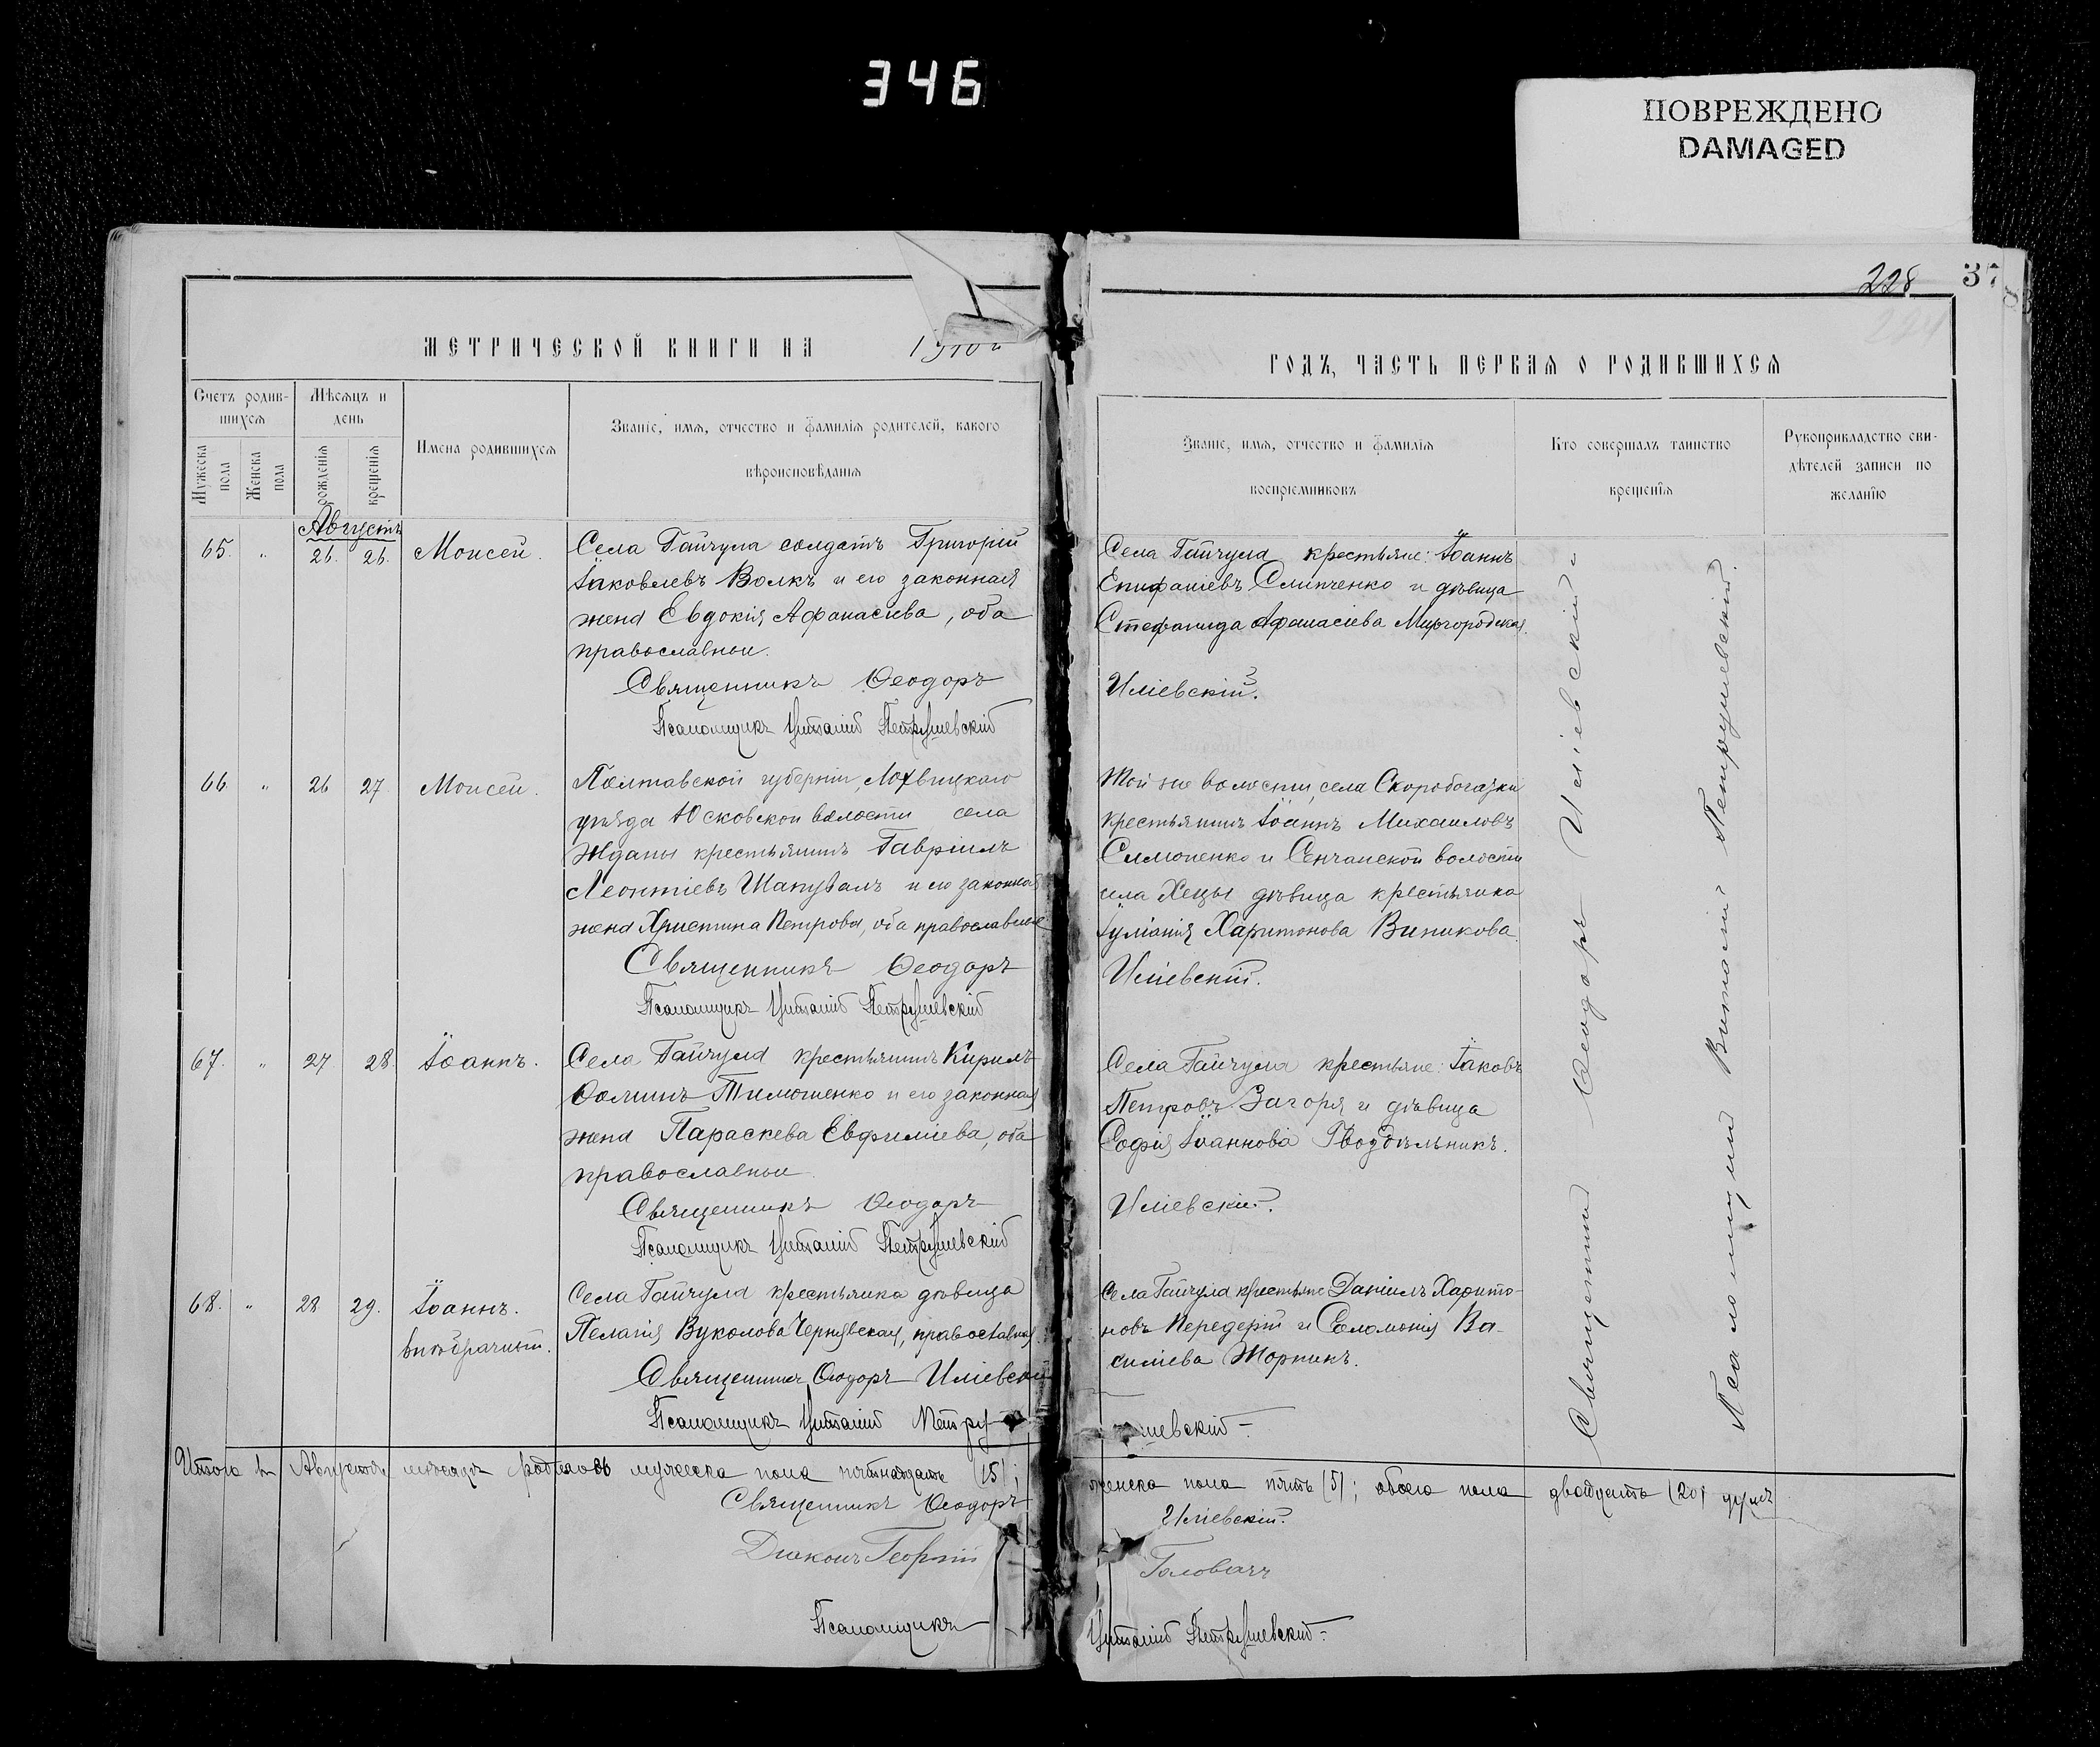 346
ПОВРЕЖДЕНО
DAMAGED
228
37
МЕТРИЧЕСКОЙ КНИГИ НА 1910 г
ГОДЪ, ЧАСТЬ ПЕРВАЯ О РОДИВШИХСЯ
Счетъ родив-
шихся
Мужеска пола
Женска пола
Мѣсяцъ и
день
рожденія
крещенія
Имена родившихся
Званіе, имя, отчество и фамилія родителей, какого
вѣроисповѣданія
Званіе, имя, отчество и фамилія
воспріемниковъ
Кто совершалъ таинство
крещенія
Рукоприкладство сви-
дѣтелей записи по
желанію
Августъ
65. " 26. 26. Моисей.
Села Гайчула солдатъ Григорій
Іаковлевъ Волкъ и его законная
жена Евдокія Афанасіева, оба
православные.
Священникъ Ѳеодоръ
Псаломщикъ Виталій Петрушевскій
Села Гайчула крестьяне: Іоаннъ
Епифаніевъ Слипченко и дѣвица
Стефанида Афанасіева Миргородская.
Иліевскій.
66. " 26 27 Моисей.
Полтавской губерніи, Лохвицкаго
уѣзда Юсковской волости села
Жданы крестьянинъ Гавріилъ
Леонтіевъ Шаповалъ и его законная
жена Христина Петрова, оба православные
Священникъ Ѳеодоръ
Псаломщикъ Виталій Петрушевскій
Той же волости, села Скоробогазки
крестьянинъ Іоаннъ Михаиловъ
Симоненко и Сенчанской волости
села Хецы дѣвица крестьянка
Іуліанія Харитонова Виникова.
Иліевскій.
67. " 27 28. Іоаннъ.
Села Гайчула крестьянинъ Кирилъ
Ѳоминъ Тимошенко и его законная
жена Параскева Евфиміева, оба
православные
Священникъ Ѳеодоръ
Псаломщикъ Виталій Петрушевскій
Села Гайчула крестьяне: Іаковъ
Петровъ Загоря и дѣвица
Софія Іоаннова Гвоздѣльникъ.
Иліевскій.
68. " 28 29. Іоаннъ.
внѣбрачный.
Села Гайчула крестьянка дѣвица
Пелагія Вуколова Чернявская, православная.
Священникъ Ѳеодоръ Иліевскій
Псаломщикъ Виталій Петру-
Села Гайчула крестьяне Даніилъ Харито-
новъ Передерій и Соломонія Ва-
силіева Жорникъ.
шевскій
Священникъ Ѳеодоръ Иліевскій
Псаломщикъ Виталій Петрушевскій.
Итого въ Августѣ мѣсяцѣ родилось мужеска пола пятнадцать (15); женска пола пять (5); обоего пола двадцать (20) душъ
Священникъ Ѳеодоръ Иліевскій.
Діаконъ Георгій Головачъ
Псаломщикъ Виталій Петрушевскій